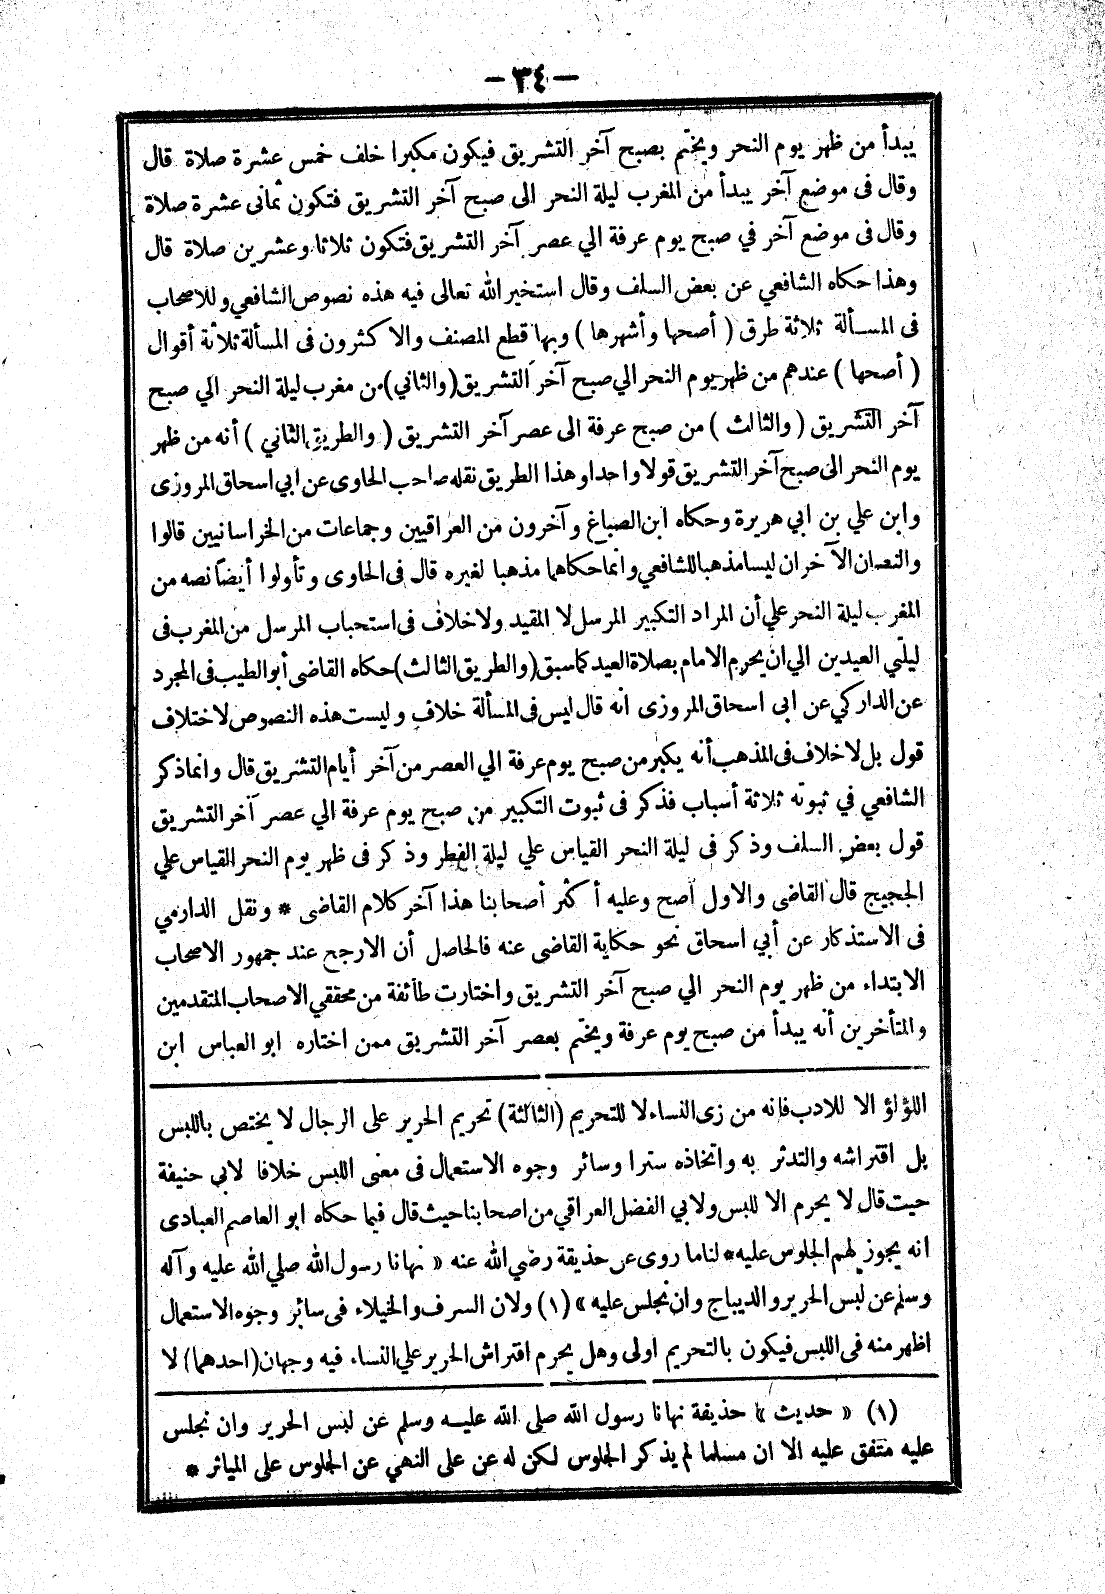 — ٣٤ —
يبدأ من ظهر يوم النحر ويختم بصبح آخر التشريق فيكون مكبرا خلف خمس عشرة صلاة قال
وقال فى موضع آخر يبدأ من المغرب ليلة النحر الى صبح آخر التشريق فتكون ثمانى عشرة صلاة
وقال فى موضع آخر في صبح يوم عرفة الي عصر آخر التشريق فتكون ثلاثا وعشرين صلاة قال
وهذا حكاه الشافعي عن بعض السلف وقال استخير الله تعالى فيه هذه نصوص الشافعي وللاصحاب
فى المسألة ثلاثة طرق ( أصحها وأشهرها ) وبها قطع المصنف والاكثرون فى المسألة ثلاثة أقوال
( أصحها ) عندهم من ظهر يوم النحر الي صبح آخر التشريق (والثاني) من مغرب ليلة النحر الي صبح
آخر التشريق ( والثالث ) من صبح عرفة الى عصر آخر التشريق ( والطريق الثاني ) أنه من ظهر
يوم النحر الى صبح آخر التشريق قولا واحدا وهذا الطريق نقله صاحب الحاوى عن ابي اسحاق المروزى
وابن علي بن ابي هريرة وحكاه ابن الصباغ وآخرون من العراقيين وجماعات من الخراسانيين قالوا
والنصان الآخران ليسا مذهبا للشافعي وانما حكاهما مذهبا لغيره قال فى الحاوى وتأولوا أيضا نصه من
المغرب ليلة النحر علي أن المراد التكبير المرسل لا المقيد ولا خلاف فى استحباب المرسل من المغرب فى
ليلتي العيدين الي ان يحرم الامام بصلاة العيد كما سبق (والطريق الثالث) حكاه القاضى أبو الطيب فى المجرد
عن الداركي عن ابى اسحاق المروزى انه قال ليس فى المسألة خلاف وليست هذه النصوص لاختلاف
قول بل لا خلاف فى المذهب أنه يكبر من صبح يوم عرفة الي العصر من آخر أيام التشريق قال وانما ذكر
الشافعي في ثبوته ثلاثة أسباب فذكر فى ثبوت التكبير من صبح يوم عرفة الي عصر آخر التشريق
قول بعض السلف وذكر فى ليلة النحر القياس علي ليلة الفطر وذكر فى ظهر يوم النحر القياس علي
الحجيج قال القاضى والاول أصح وعليه أكثر أصحابنا هذا آخر كلام القاضى * ونقل الدارمي
فى الاستذكار عن أبي اسحاق نحو حكاية القاضى عنه فالحاصل أن الارجح عند جمهور الاصحاب
الابتداء من ظهر يوم النحر الي صبح آخر التشريق واختارت طائفة من محققي الاصحاب المتقدمين
والمتأخرين أنه يبدأ من صبح يوم عرفة ويختم بعصر آخر التشريق ممن اختاره ابو العباس ابن
اللؤلؤ الا للادب فانه من زى النساء لا للتحريم (الثالثة) تحريم الحرير على الرجال لا يختص باللبس
بل افتراشه والتدثر به واتخاذه سترا وسائر وجوه الاستعمال فى معنى اللبس خلافا لابي حنيفة
حيث قال لا يحرم الا للبس ولابي الفضل العراقي من اصحابنا حيث قال فيما حكاه ابو العاصم العبادى
انه يجوز لهم الجلوس عليه * لنا ما روى عن حذيفة رضي الله عنه « نهانا رسول الله صلي الله عليه وآله
وسلم عن لبس الحرير والديباج وان نجلس عليه » (١) ولان السرف والخيلاء فى سائر وجوه الاستعمال
اظهر منه فى اللبس فيكون بالتحريم اولى وهل يحرم افتراش الحرير علي النساء فيه وجهان (احدهما) لا
(١) « حديث » حذيفة نهانا رسول الله صلى الله عليه وسلم عن لبس الحرير وان نجلس
عليه متفق عليه الا ان مسلما لم يذكر الجلوس لكن له عن على النهي عن الجلوس على المياثر *